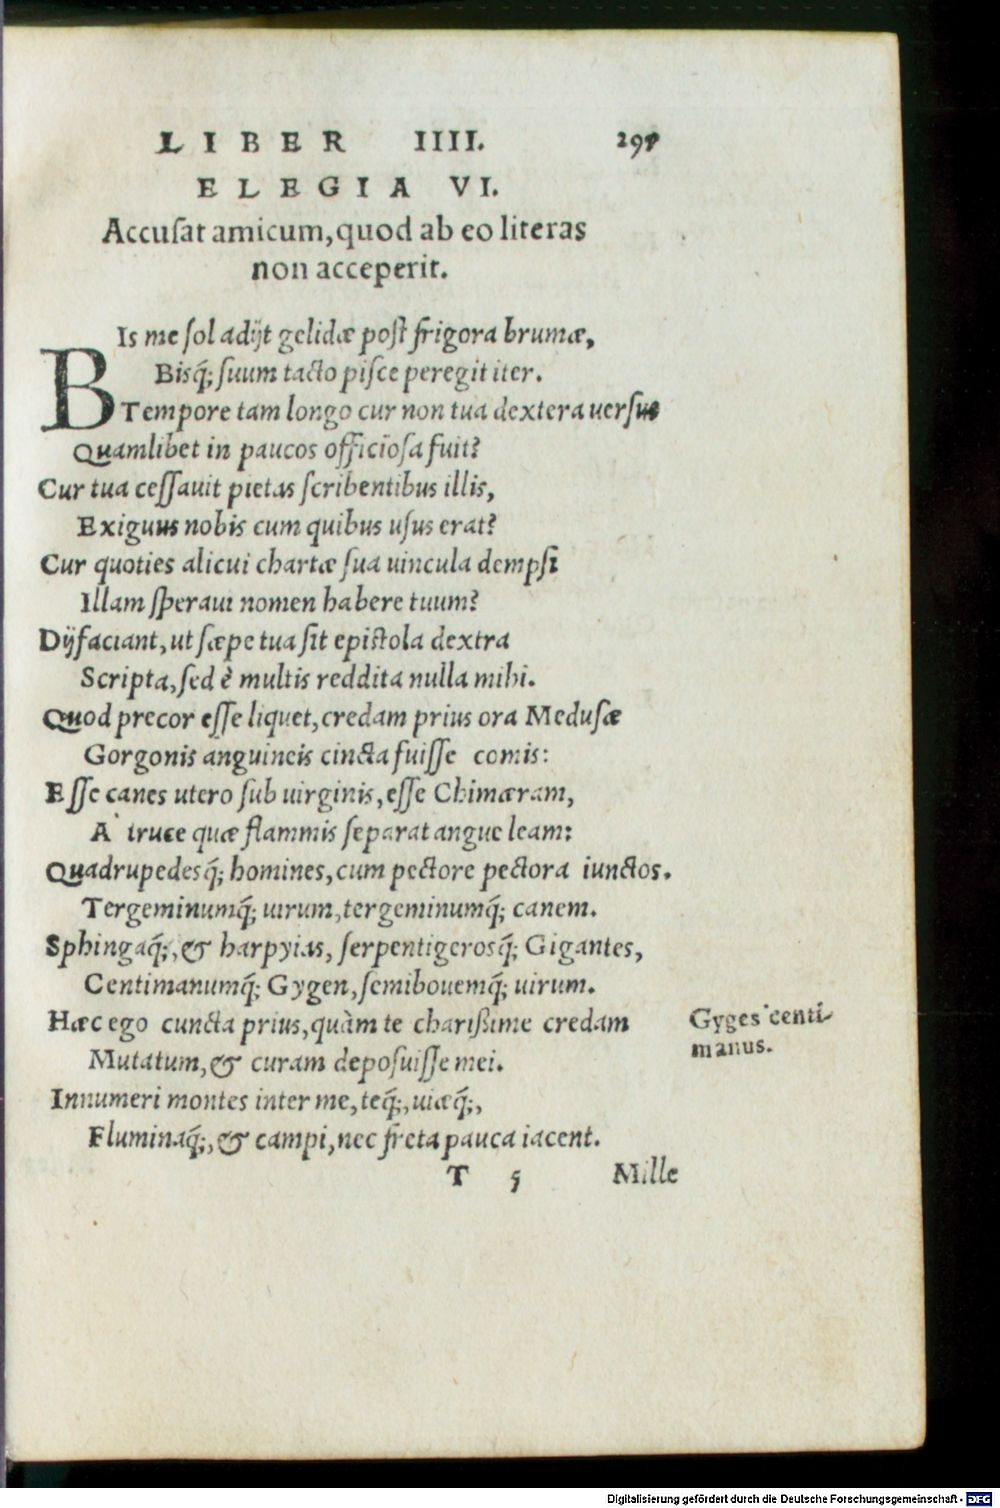 LIBER IIII. 297
ELEGIA VI.
Accuſat amicum, quod ab eo literas
non acceperit.
BIs me ſol adijt gelidæ poſt frigora brumæ,
Bisq́; ſuum tacto piſce peregit iter.
Tempore tam longo cur non tua dextera uerſus
Quamlibet in paucos officioſa fuit?
Cur tua ceſſauit pietas ſcribentibus illis,
Exiguus nobis cum quibus uſus erat?
Cur quoties alicui chartæ ſua uincula dempſi
Illam ſperaui nomen habere tuum?
Dij faciant, ut ſæpe tua ſit epiſtola dextra
Scripta, ſed è multis reddita nulla mihi.
Quod precor eſſe liquet, credam prius ora Meduſæ
Gorgonis anguineis cincta fuiſſe comis:
Eſſe canes utero ſub uirginis, eſſe Chimæram,
A' truce quæ flammis ſeparat angue leam:
Quadrupedesq́; homines, cum pectore pectora iunctos.
Tergeminumq́; uirum, tergeminumq́; canem.
Sphingaq́;, & harpyias, ſerpentigerosq́; Gigantes,
Centimanumq́; Gygen, ſemibouemq́; uirum.
Hæc ego cuncta prius, quàm te chariſsime credam
Mutatum, & curam depoſuiſſe mei.
Innumeri montes inter me, teq́;, uiæq́;,
Fluminaq́;, & campi, nec freta pauca iacent.
Gyges centi-
manus.
T 5 Mille
Digitalisierung gefördert durch die Deutsche Forschungsgemeinschaft - DFG